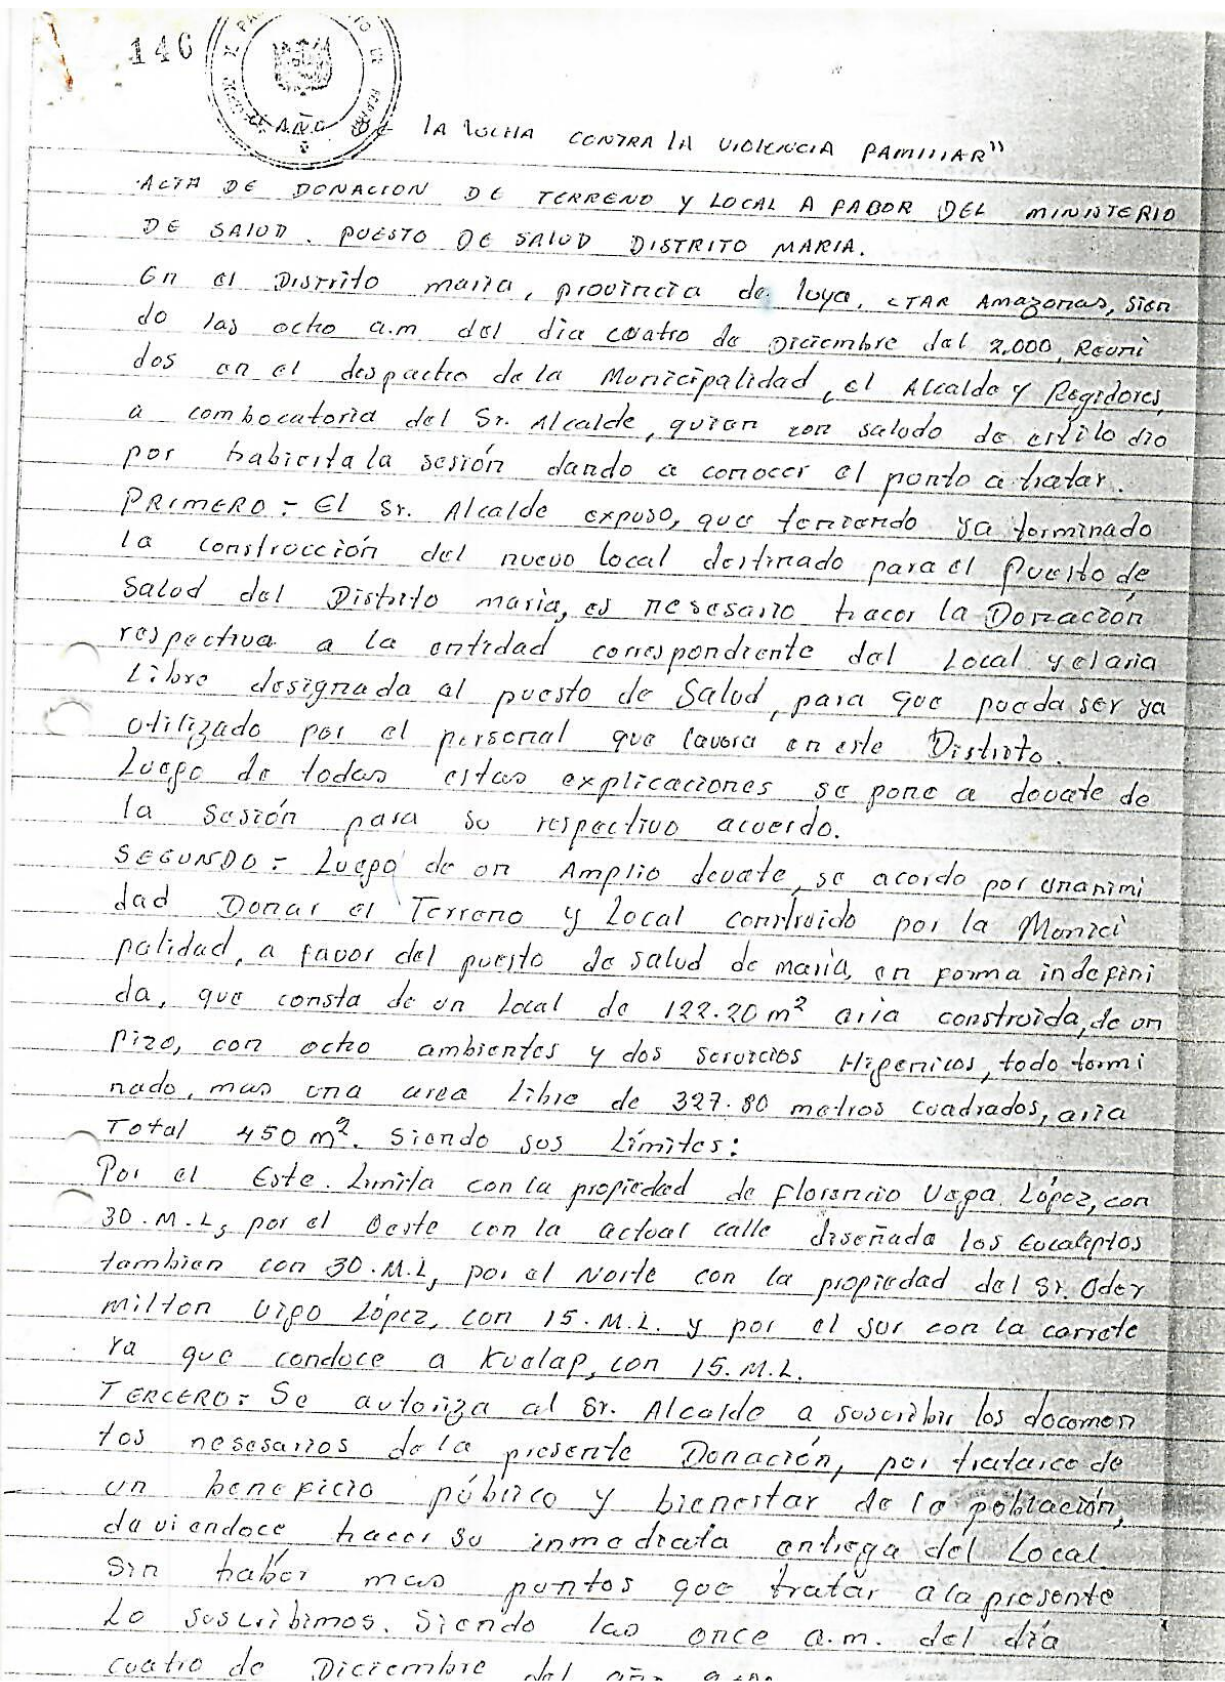 146
AÑO DE LA LUCHA CONTRA LA VIOLENCIA FAMILIAR"
ACTA DE DONACION DE TERRENO Y LOCAL A FABOR DEL MINISTERIO
DE SALUD. PUESTO DE SALUD DISTRITO MARIA.
En el Distrito maria, provincia de luya, CTAR Amazonas, Sien
do las ocho a.m del dia cuatro de Diciembre del 2,000, Reuni
dos en el despacho de la Municipalidad, el Alcalde y Regidores,
a combocatoria del Sr. Alcalde, quien con saludo de estilo dio
por habierta la sesión dando a conocer el punto a tratar.
PRIMERO:- El Sr. Alcalde expuso, que teniendo ya terminado
la construcción del nuevo local destinado para el Puesto de
Salud del Distrito maria, es nesesario hacer la Donación
respectiva a la entidad correspondiente del Local y el aria
Libre designada al puesto de Salud, para que pueda ser ya
utilizado por el personal que lavora en este Distrito.
Luego de todas estas explicaciones se pone a devate de
la Sesión para su respectivo acuerdo.
SEGUNDO:- Luego de un Amplio devate, se acordo por unanimi
dad Donar el Terreno y Local construido por la Munici
palidad, a favor del puesto de salud de maria, en forma indefini
da, que consta de un Local de 122.20 m² aria construida, de un
Pizo, con ocho ambientes y dos servicios Higenicos, todo termi
nado, mas una area Libre de 327.80 metros cuadrados, aria
Total 450 m². Siendo sus Límites:
Por el Este. Limita con la propiedad de Florencio Vega López, con
30.M.L, por el Oeste con la actual calle diseñada los Eucaliptos
tambien con 30.M.L, por el Norte con la propiedad del Sr. Oder
milton Vigo López, con 15.M.L. y por el sur con la carrete
ra que conduce a Kuelap, con 15.M.L.
TERCERO:- Se autoriza al Sr. Alcalde a suscribir los documen
tos nesesarios de la presente Donación, por tratarce de
un beneficio público y bienestar de la población,
daviendoce hacer su inmediata entrega del Local
Sin habér mas puntos que tratar a la presente
Lo suscribimos. Siendo las once a.m. del día
cuatro de Diciembre del año